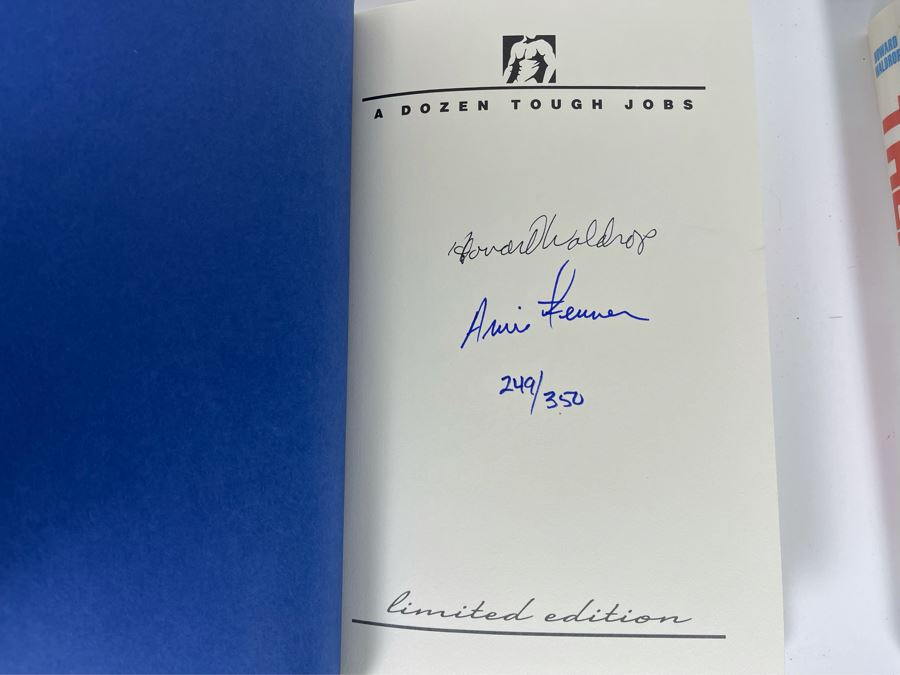 A DOZEN TOUGH JOBS
Howard Waldrop
Arnie Fenner
249/350
limited edition
HOWARD
WALDROP